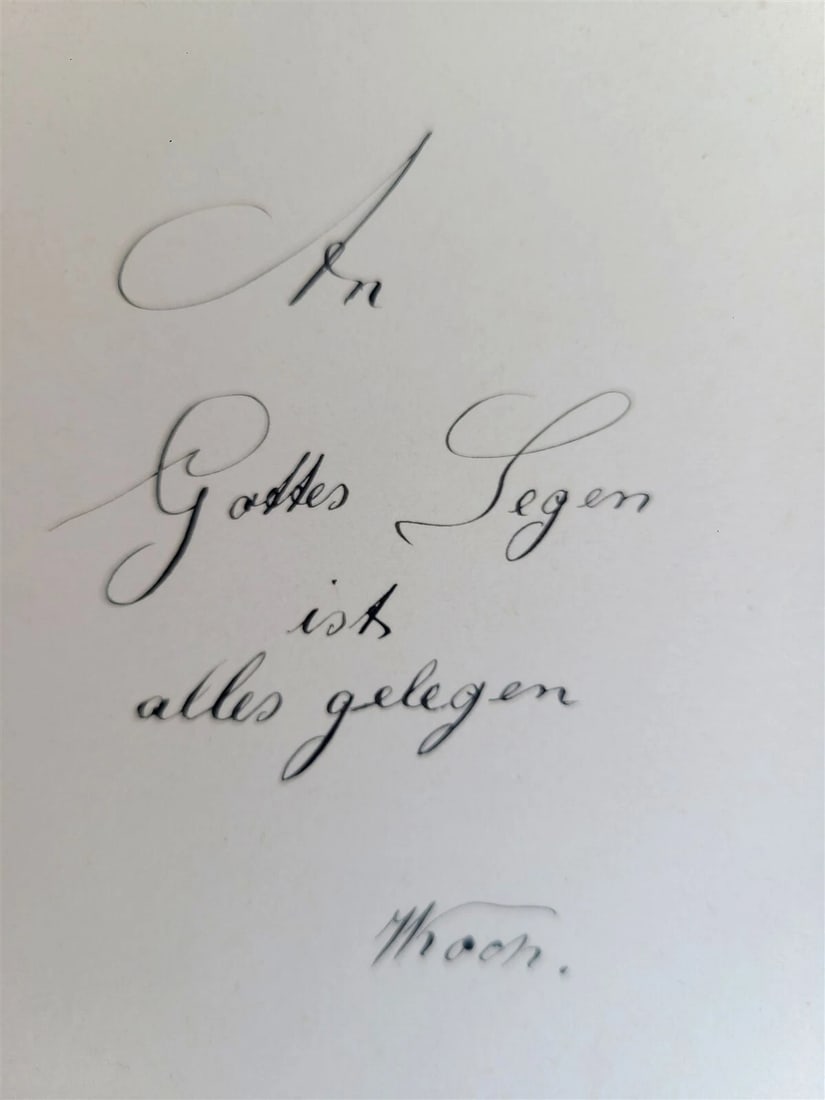 An
Gottes Segen
ist
alles gelegen